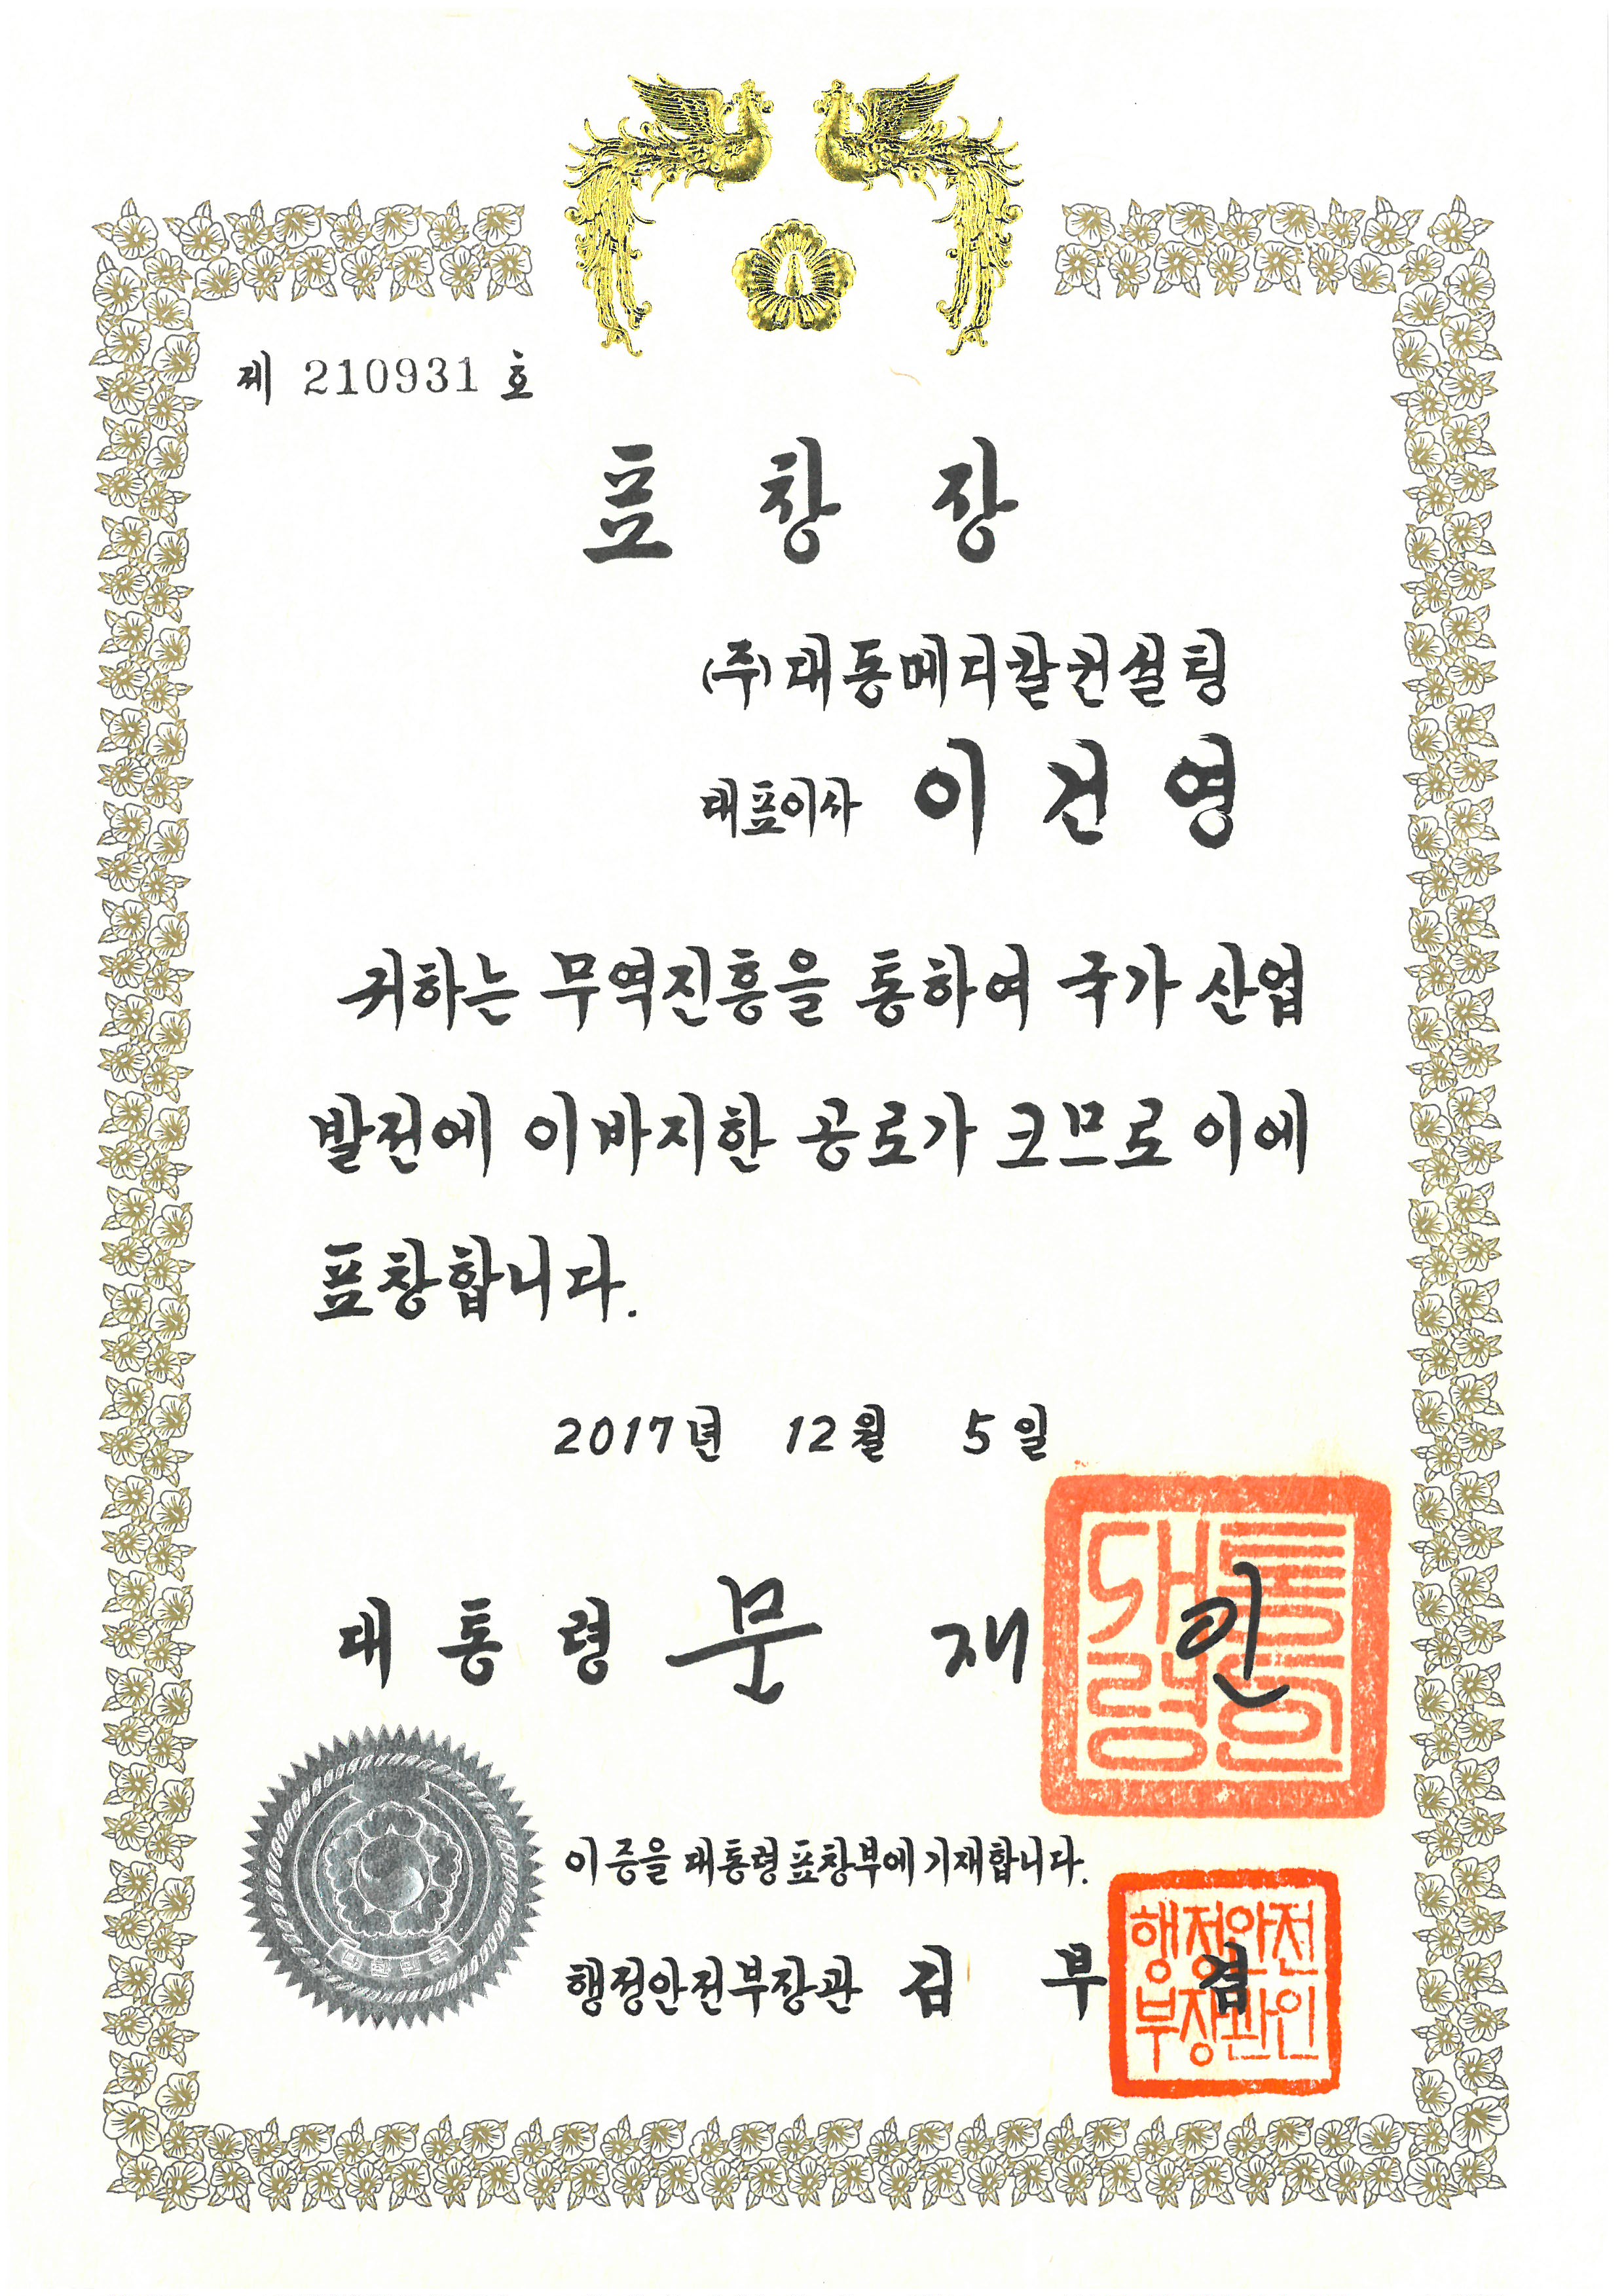 제 210931 호
표 창 장
(주)대동메디칼컨설팅
대표이사 이 건 영
귀하는 무역진흥을 통하여 국가 산업
발전에 이바지한 공로가 크므로 이에
표창합니다.
2017년 12월 5일
대 통 령 문 재 인
대통령인
이 증을 대통령 표창부에 기재합니다.
행정안전부장관 김 부 겸
행정안전
부장관인